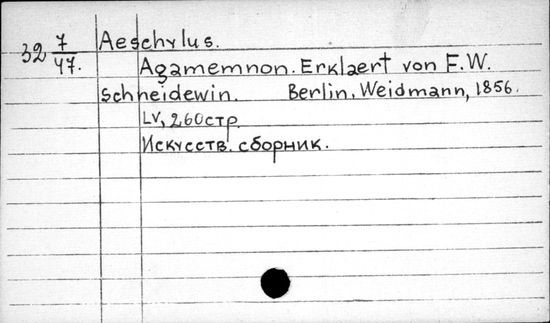 32 7/47.
Aeschylus.
Agamemnon. Erklaert von F.W.
Schneidewin. Berlin, Weidmann, 1856.
LV, 260 стр.
Искусств. сборник.